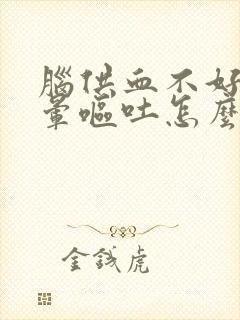 腦供血不好
暈嘔吐怎麼
金錢虎